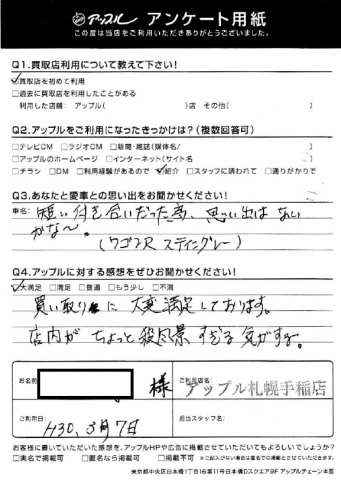 アップル アンケート用紙
この度は当店をご利用いただきありがとうございました。
Q1.買取店利用について教えて下さい!
☑買取店を初めて利用
□過去に買取店を利用したことがある
利用した店舗: アップル( )店 その他( )
Q2.アップルをご利用になったきっかけは?(複数回答可)
□テレビCM □ラジオCM □新聞・雑誌(媒体名/ )
□アップルのホームページ □インターネット(サイト名 )
□チラシ □DM □利用経験があるので ☑紹介 □スタッフに誘われて □通りがかりで
Q3.あなたと愛車との思い出をお聞かせください!
車名: 短い付き合いだった為、思い出は ない
かな〜。
(ワゴンR スティングレー)
Q4.アップルに対する感想をぜひお聞かせください!
☑大満足 □満足 □普通 □もう少し □不満
買い取りに 大変満足しております。
店内が ちょっと殺風景 すぎる 気がする。
お名前 様
ご利用店名: アップル札幌手稲店
ご利用日: H30.3月7日
担当スタッフ名:
お客様に書いていただいた感想を、アップルHPや広告に掲載させていただいてもよろしいでしょうか?
□実名で掲載可 □匿名なら掲載可 □掲載不可 ※ご記入がない場合は匿名での掲載とさせていただきます。
東京都中央区日本橋1丁目16番11号日本橋Dスクエア8F アップルチェーン本部